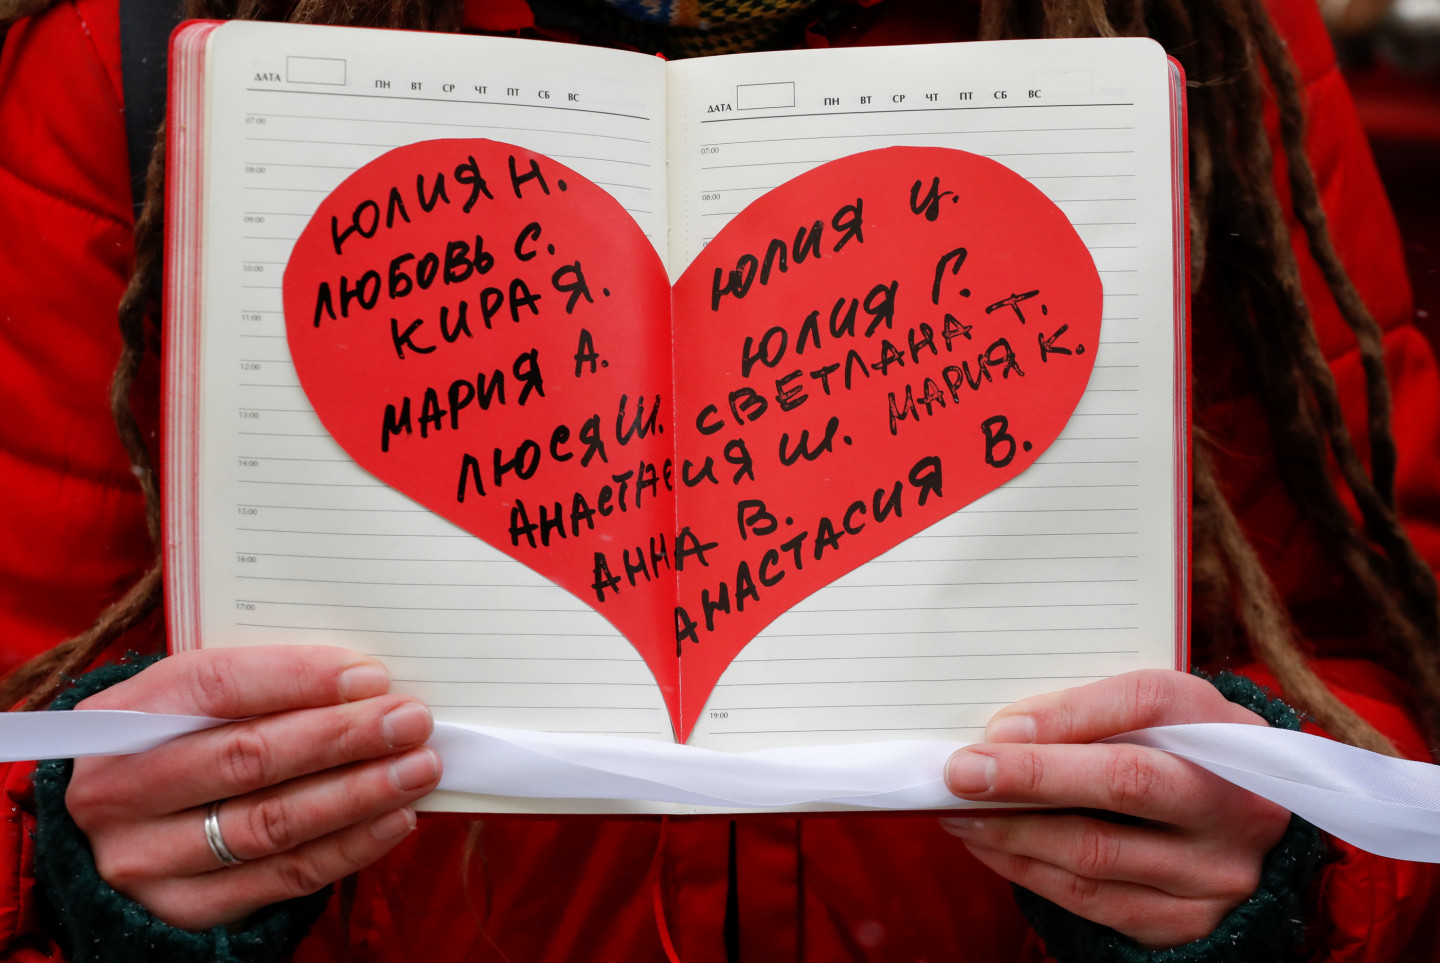 ДАТА ПН ВТ СР ЧТ ПТ СБ ВС
07:00
08:00
09:00
10:00
11:00
12:00
13:00
14:00
15:00
16:00
17:00
ЮЛИЯ Н.
ЛЮБОВЬ С.
КИРА Я.
МАРИЯ А.
ЛЮСЯ Ш.
АНАСТАСИЯ Ш.
АННА В.
АНАСТАСИЯ В.
ДАТА ПН ВТ СР ЧТ ПТ СБ ВС
07:00
08:00
19:00
ЮЛИЯ Ц.
ЮЛИЯ Г.
СВЕТЛАНА Т.
МАРИЯ К.